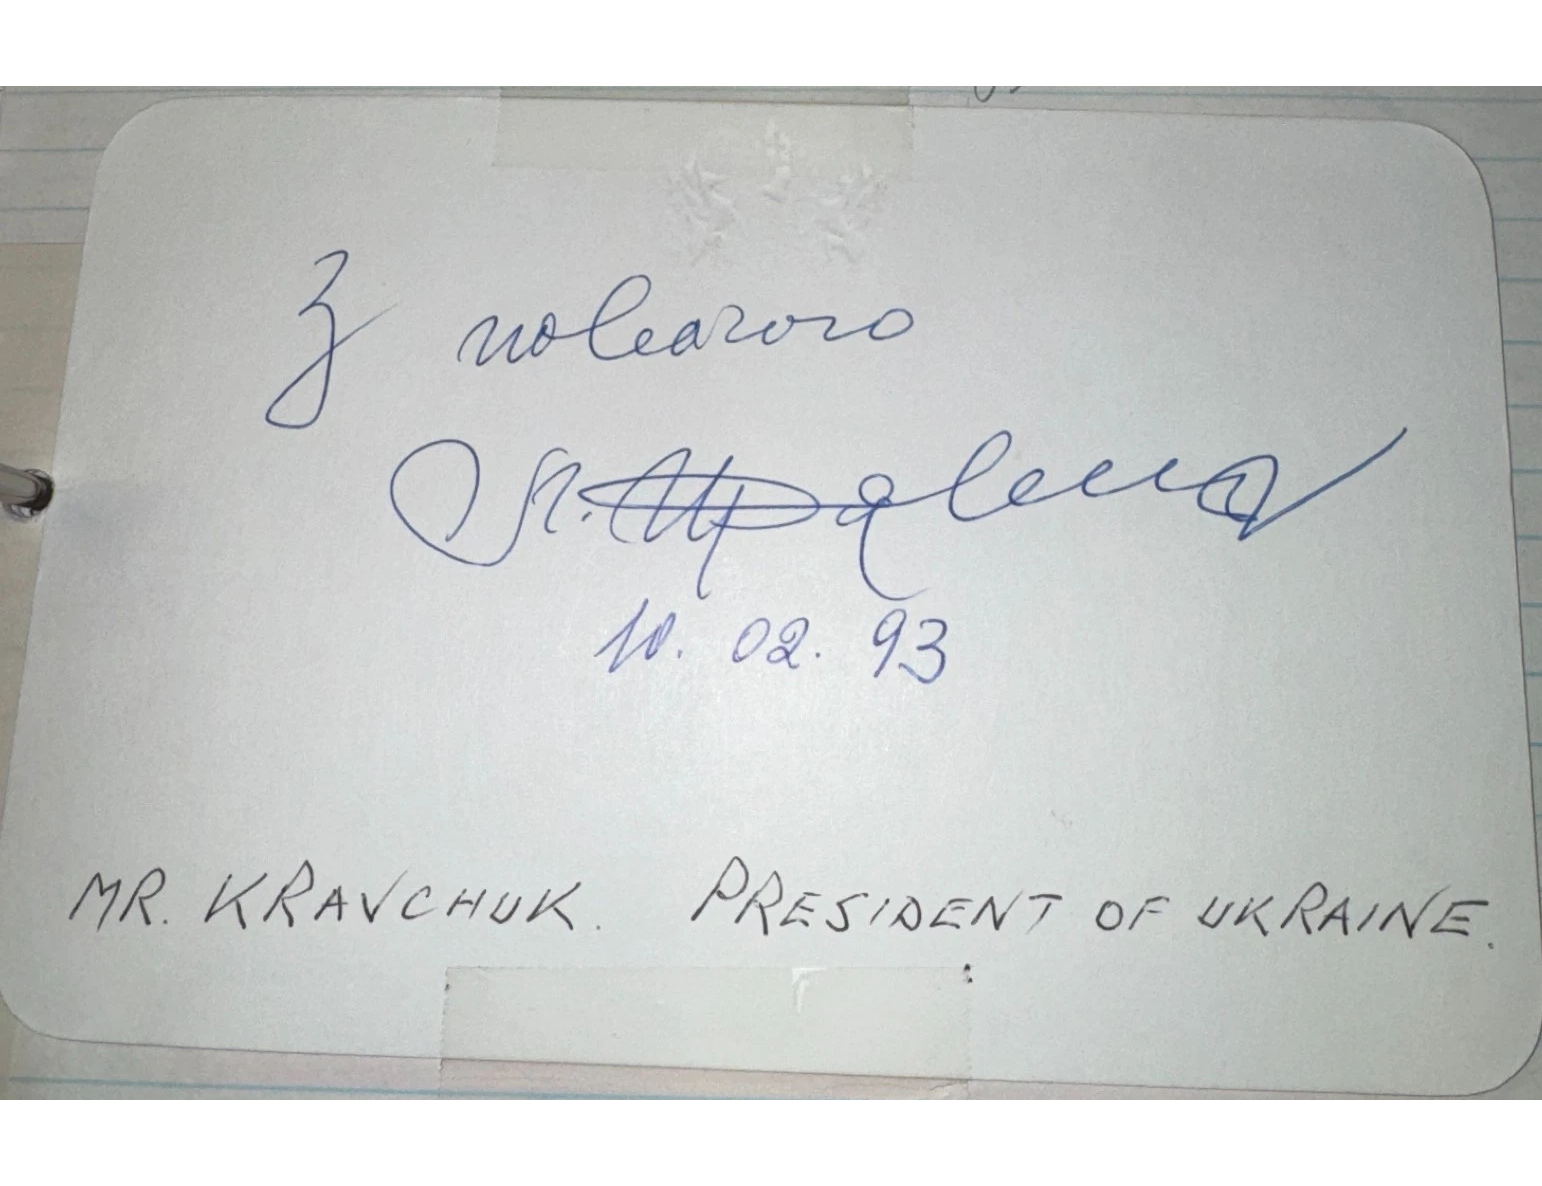 З повагою
10. 02. 93
MR. KRAVCHUK. PRESIDENT OF UKRAINE.